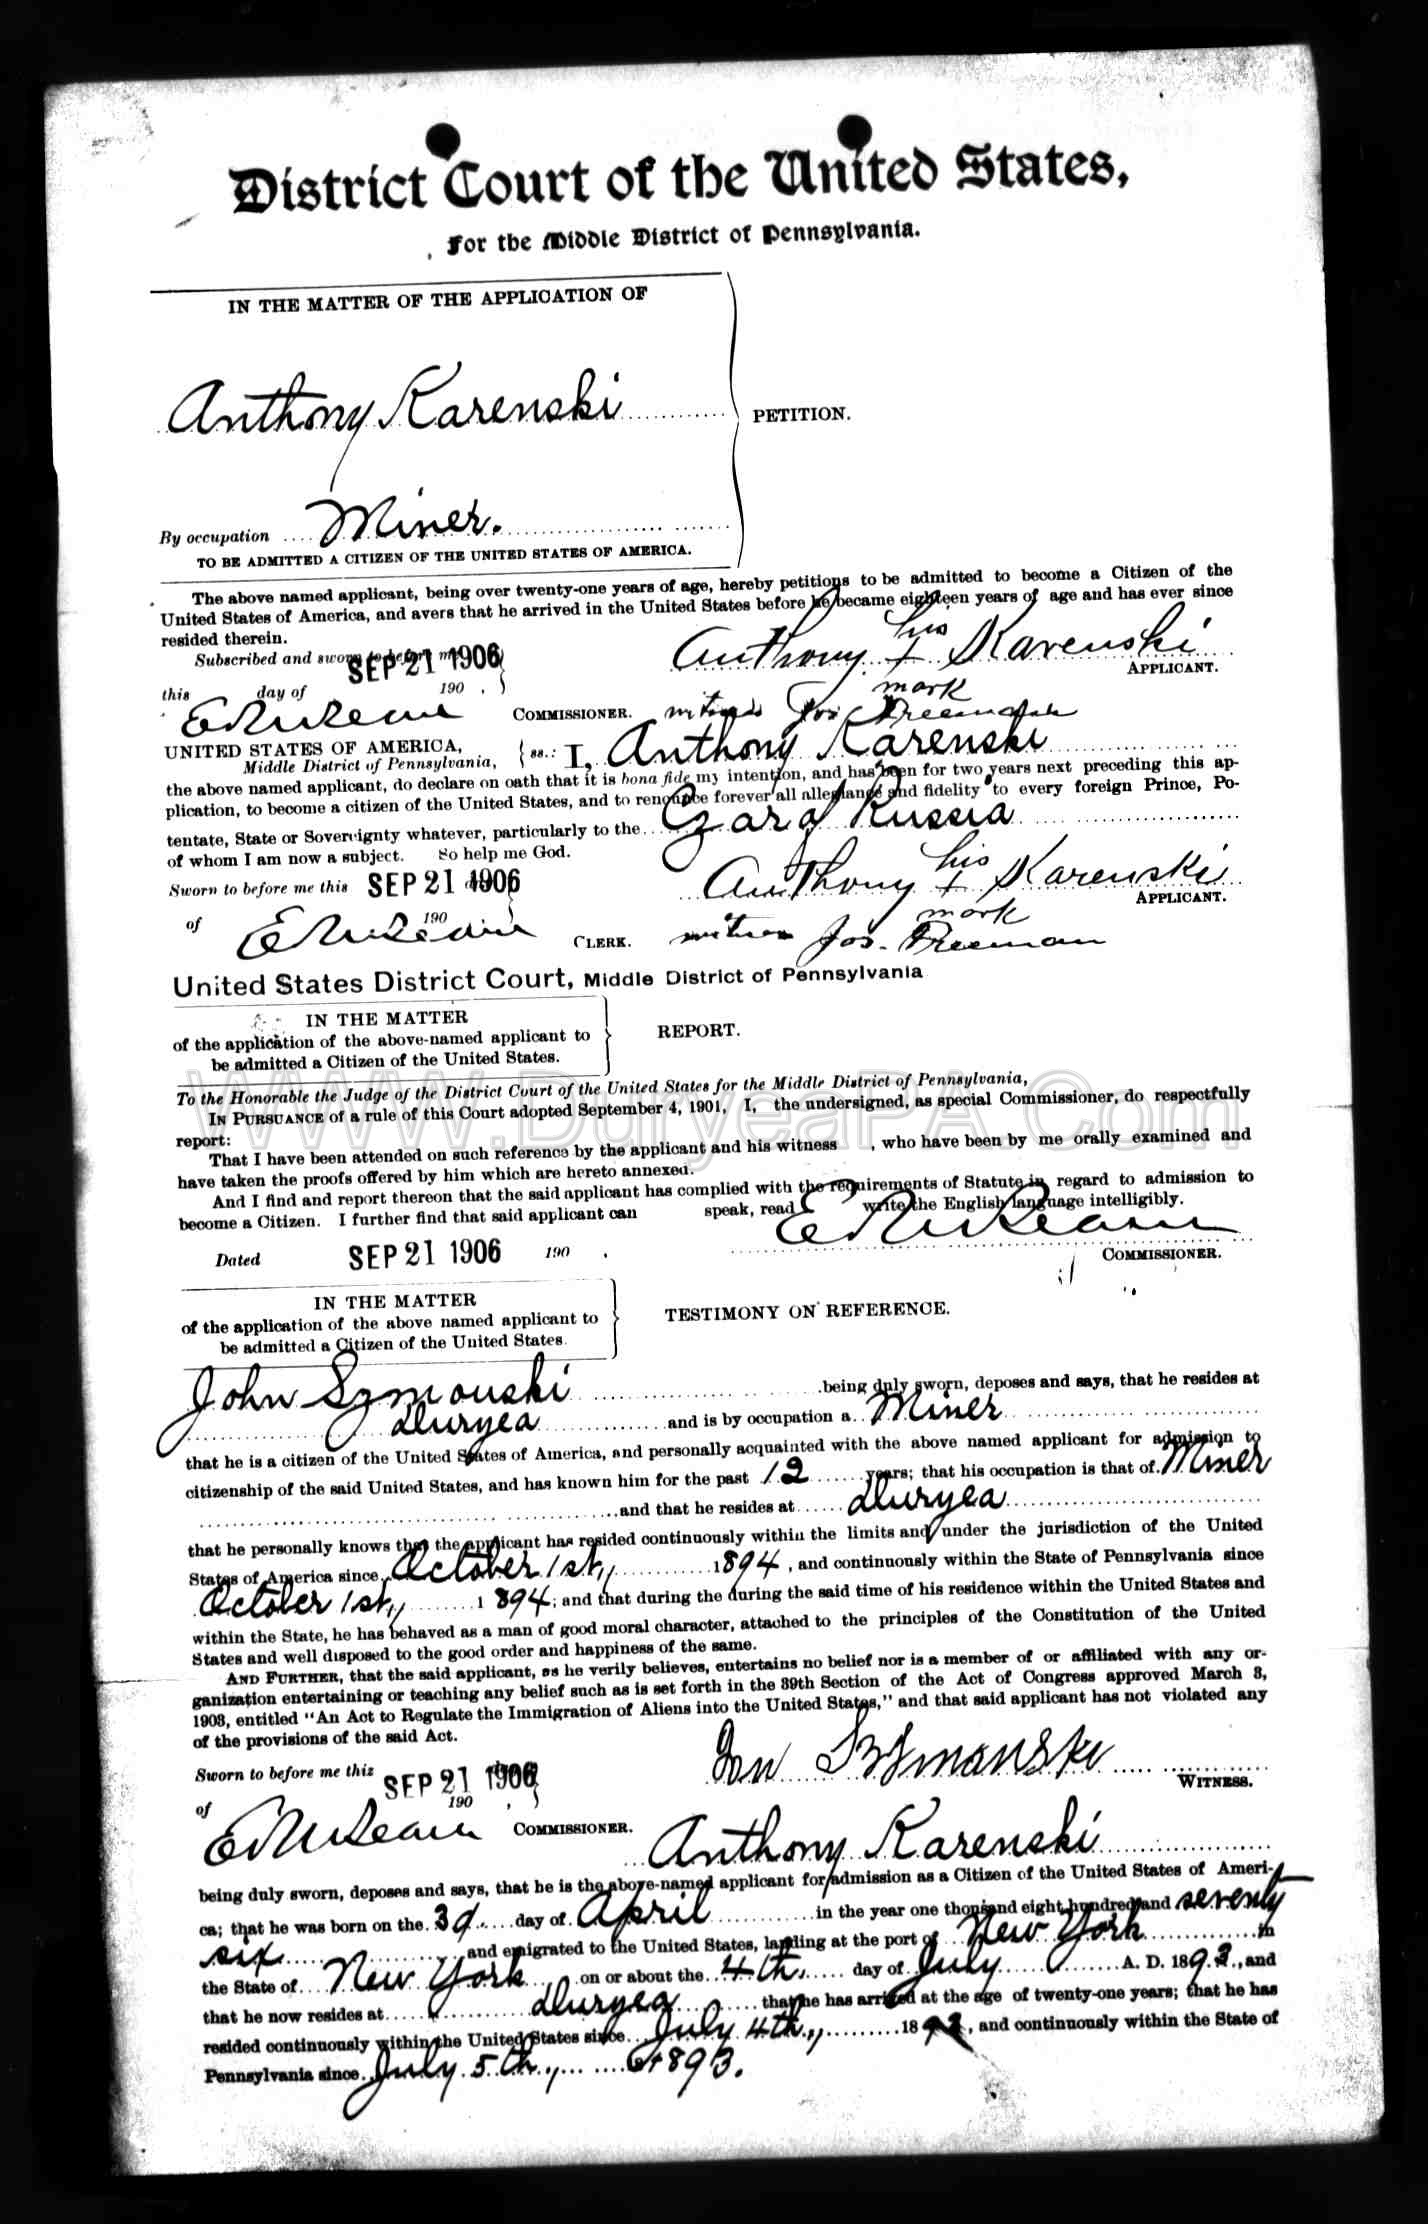 District Court of the United States,
For the Middle District of Pennsylvania.
IN THE MATTER OF THE APPLICATION OF
Anthony Karenski
PETITION.
By occupation Miner.
TO BE ADMITTED A CITIZEN OF THE UNITED STATES OF AMERICA.
The above named applicant, being over twenty-one years of age, hereby petitions to be admitted to become a Citizen of the
United States of America, and avers that he arrived in the United States before he became eighteen years of age and has ever since
resided therein.
Subscribed and sworn to before me
SEP 21 1906
Anthony his + mark Karenski
APPLICANT.
this day of 190 .
COMMISSIONER.
witness Jos. Freeman
UNITED STATES OF AMERICA,
Middle District of Pennsylvania,
ss.: I, Anthony Karenski
the above named applicant, do declare on oath that it is bona fide my intention, and has been for two years next preceding this ap-
plication, to become a citizen of the United States, and to renounce forever all allegiance and fidelity to every foreign Prince, Po-
tentate, State or Sovereignty whatever, particularly to the Czar of Russia
of whom I am now a subject. So help me God.
Sworn to before me this SEP 21 1906
Anthony his + mark Karenski
APPLICANT.
of 190
CLERK.
witness Jos. Freeman
United States District Court, Middle District of Pennsylvania
IN THE MATTER
of the application of the above-named applicant to
be admitted a Citizen of the United States.
REPORT.
To the Honorable the Judge of the District Court of the United States for the Middle District of Pennsylvania,
IN PURSUANCE of a rule of this Court adopted September 4, 1901, I, the undersigned, as special Commissioner, do respectfully
report:
WWW.DuryeaPA.Com
That I have been attended on such reference by the applicant and his witness , who have been by me orally examined and
have taken the proofs offered by him which are hereto annexed.
And I find and report thereon that the said applicant has complied with the requirements of Statute in regard to admission to
become a Citizen. I further find that said applicant can speak, read write the English language intelligibly.
Dated SEP 21 1906 190 .
COMMISSIONER.
IN THE MATTER
of the application of the above named applicant to
be admitted a Citizen of the United States.
TESTIMONY ON REFERENCE.
John Szmouski being duly sworn, deposes and says, that he resides at
Duryea and is by occupation a Miner
that he is a citizen of the United States of America, and personally acquainted with the above named applicant for admission to
citizenship of the said United States, and has known him for the past 12 years; that his occupation is that of Miner
and that he resides at Duryea
that he personally knows that the applicant has resided continuously within the limits and under the jurisdiction of the United
States of America since October 1st, 1894, and continuously within the State of Pennsylvania since
October 1st, 1894; and that during the during the said time of his residence within the United States and
within the State, he has behaved as a man of good moral character, attached to the principles of the Constitution of the United
States and well disposed to the good order and happiness of the same.
AND FURTHER, that the said applicant, as he verily believes, entertains no belief nor is a member of or affiliated with any or-
ganization entertaining or teaching any belief such as is set forth in the 39th Section of the Act of Congress approved March 3,
1903, entitled "An Act to Regulate the Immigration of Aliens into the United States," and that said applicant has not violated any
of the provisions of the said Act.
Sworn to before me this SEP 21 1906
WITNESS.
of 190 ,
COMMISSIONER.
Anthony Karenski
being duly sworn, deposes and says, that he is the above-named applicant for admission as a Citizen of the United States of Ameri-
ca; that he was born on the 3d day of April in the year one thousand eight hundred and seventy
six and emigrated to the United States, landing at the port of New York in
the State of New York on or about the 4th day of July A. D. 1893, and
that he now resides at Duryea that he has arrived at the age of twenty-one years; that he has
resided continuously within the United States since July 4th, 1893, and continuously within the State of
Pennsylvania since July 5th, 1893.